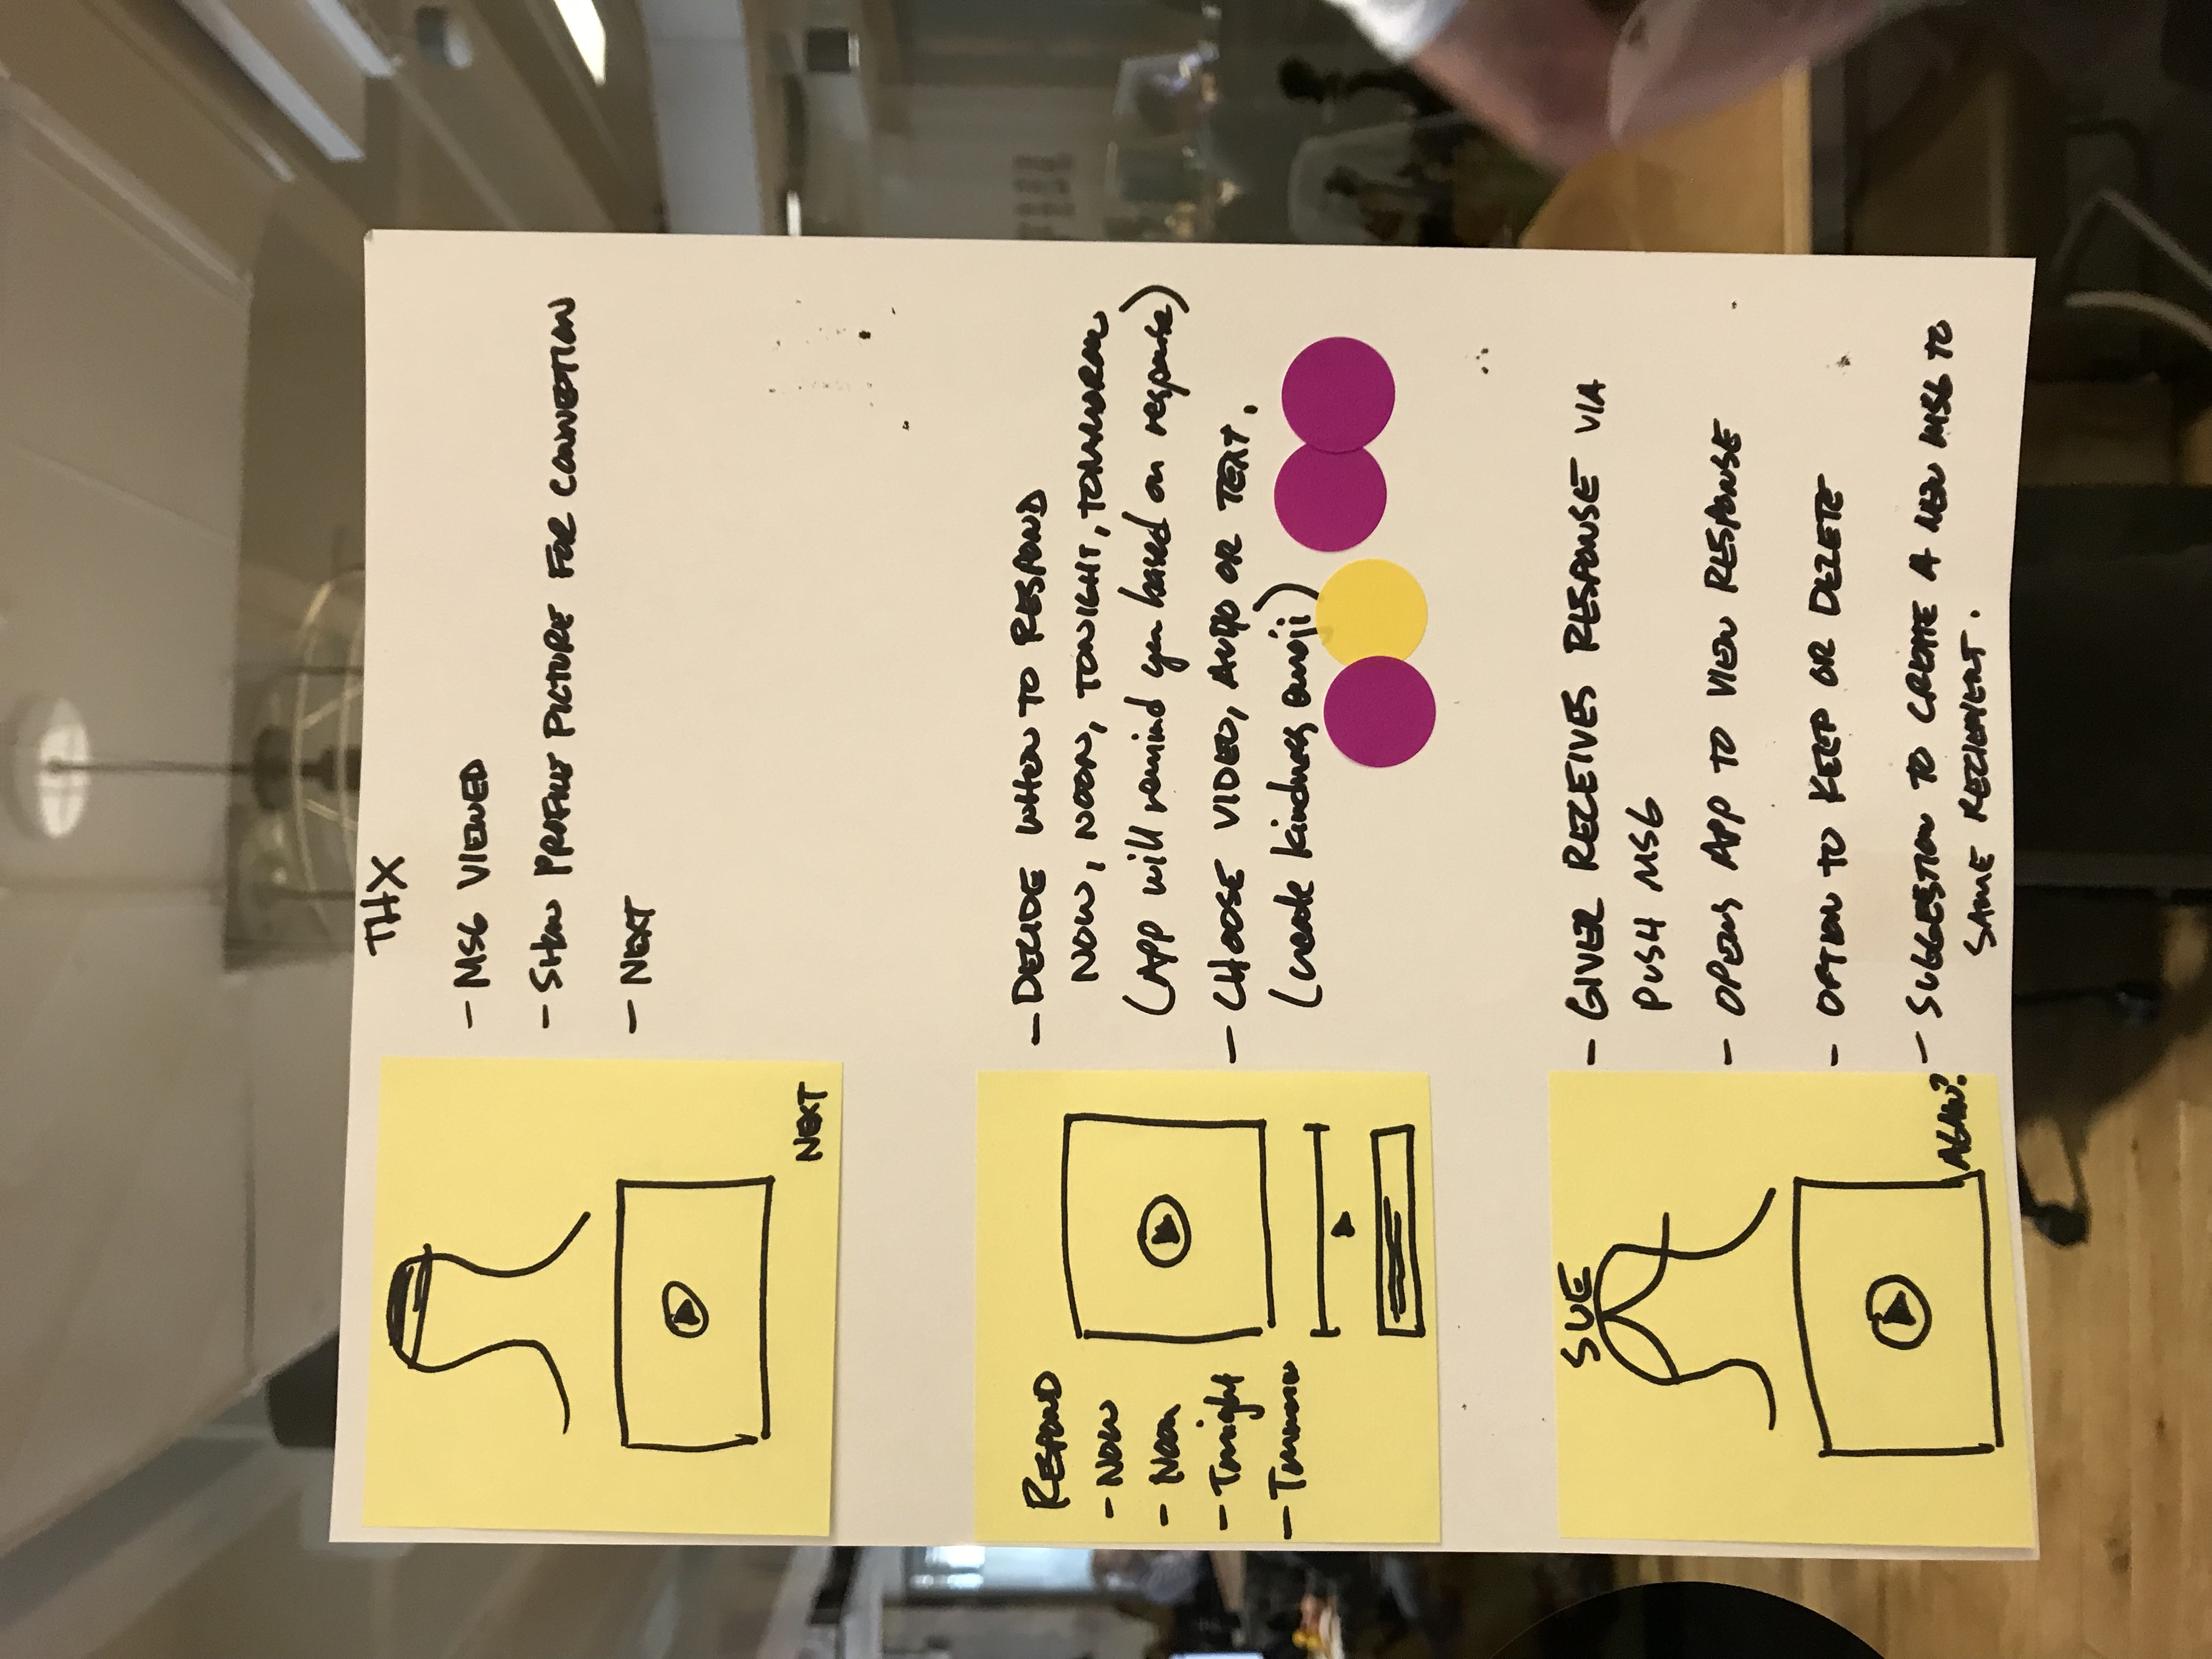 THX
- MSG VIEWED
- SHOW PROFILE PICTURE FOR CONNECTION
- NEXT
NEXT
RESPOND
- NOW
- NOON
- Tonight
- Tomorrow
- DECIDE WHEN TO RESPOND
NOW, NOON, TONIGHT, TOMMOROW
(APP will remind you based on response)
- CHOOSE VIDEO, AUDIO OR TEXT.
(create kindness emoji)
SUE
AGAIN?
- GIVER RECEIVES RESPONSE VIA
PUSH MSG
- OPENS APP TO VIEW RESPONSE
- OPTION TO KEEP OR DELETE
- SUGGESTION TO CREATE A NEW MSG TO
SAME RECIEPIENT.